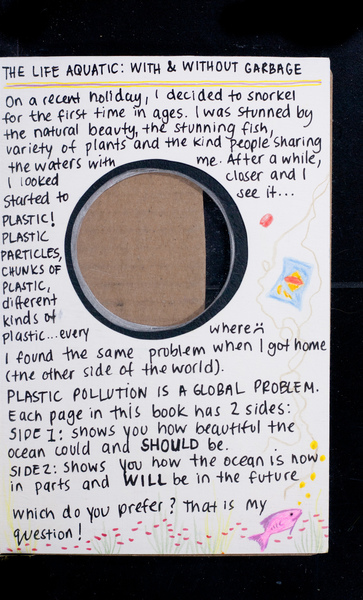 THE LIFE AQUATIC: WITH & WITHOUT GARBAGE
On a recent holiday, I decided to snorkel
for the first time in ages. I was stunned by
the natural beauty, the stunning fish,
variety of plants and the kind people sharing
the waters with me. After a while,
I looked closer and I
started to see it...
PLASTIC!
PLASTIC
PARTICLES,
CHUNKS OF
PLASTIC,
different
kinds of
plastic...every where :(
I found the same problem when I got home
(the other side of the world).
PLASTIC POLLUTION IS A GLOBAL PROBLEM.
Each page in this book has 2 sides:
SIDE 1: shows you how beautiful the
ocean could and SHOULD be.
SIDE 2: shows you how the ocean is now
in parts and WILL be in the future
which do you prefer? That is my
question!